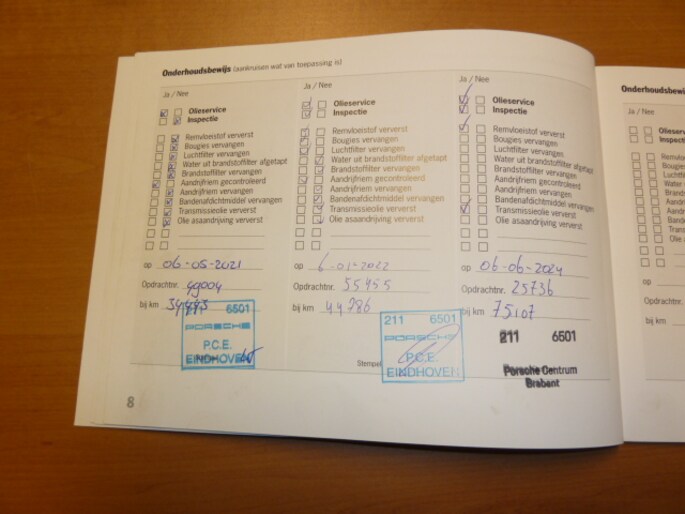 Onderhoudsbewijs (aankruisen wat van toepassing is)
Ja / Nee
Olieservice
Inspectie
Remvloeistof ververst
Bougies vervangen
Luchtfilter vervangen
Water uit brandstoffilter afgetapt
Brandstoffilter vervangen
Aandrijfriem gecontroleerd
Aandrijfriem vervangen
Bandenafdichtmiddel vervangen
Transmissieolie ververst
Olie asaandrijving ververst
op 06-05-2021
Opdrachtnr. 49004
bij km
211 6501
PORSCHE
P.C.E.
EINDHOVEN
Ja / Nee
Olieservice
Inspectie
Remvloeistof ververst
Bougies vervangen
Luchtfilter vervangen
Water uit brandstoffilter afgetapt
Brandstoffilter vervangen
Aandrijfriem gecontroleerd
Aandrijfriem vervangen
Bandenafdichtmiddel vervangen
Transmissieolie ververst
Olie asaandrijving ververst
op 6-01-2022
Opdrachtnr. 55455
bij km 44786
211 6501
PORSCHE
P.C.E.
EINDHOVEN
Stempel
Ja / Nee
Olieservice
Inspectie
Remvloeistof ververst
Bougies vervangen
Luchtfilter vervangen
Water uit brandstoffilter afgetapt
Brandstoffilter vervangen
Aandrijfriem gecontroleerd
Aandrijfriem vervangen
Bandenafdichtmiddel vervangen
Transmissieolie ververst
Olie asaandrijving ververst
op 06-06-2024
Opdrachtnr. 25736
bij km 75107
211 6501
Porsche Centrum
Brabant
8
Ja / Nee
op
Opdrachtnr.
bij km